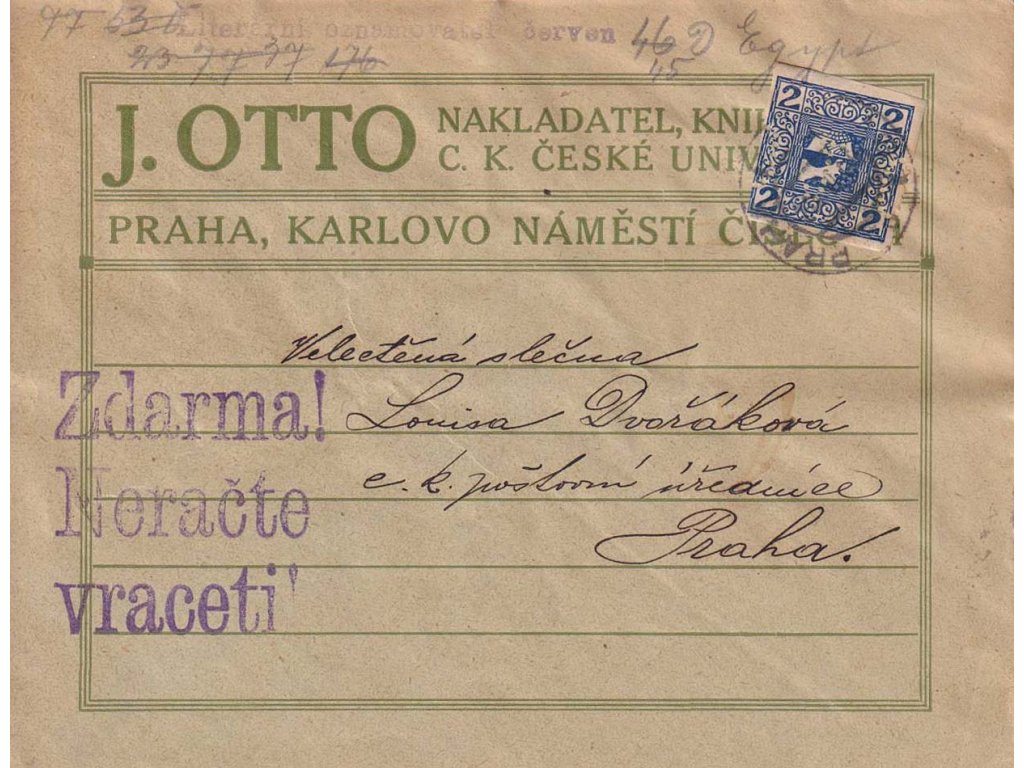 Literární oznamovatel červen 46 D Egypt
45
J. OTTO
NAKLADATEL, KNI
C. K. ČESKÉ UNIV
PRAHA, KARLOVO NÁMĚSTÍ
2 2
2 2
PRAG
Velectěná slečna
Louisa Dvořáková
c. k. poštovní úřednice
Praha.
Zdarma!
Neračte
vraceti